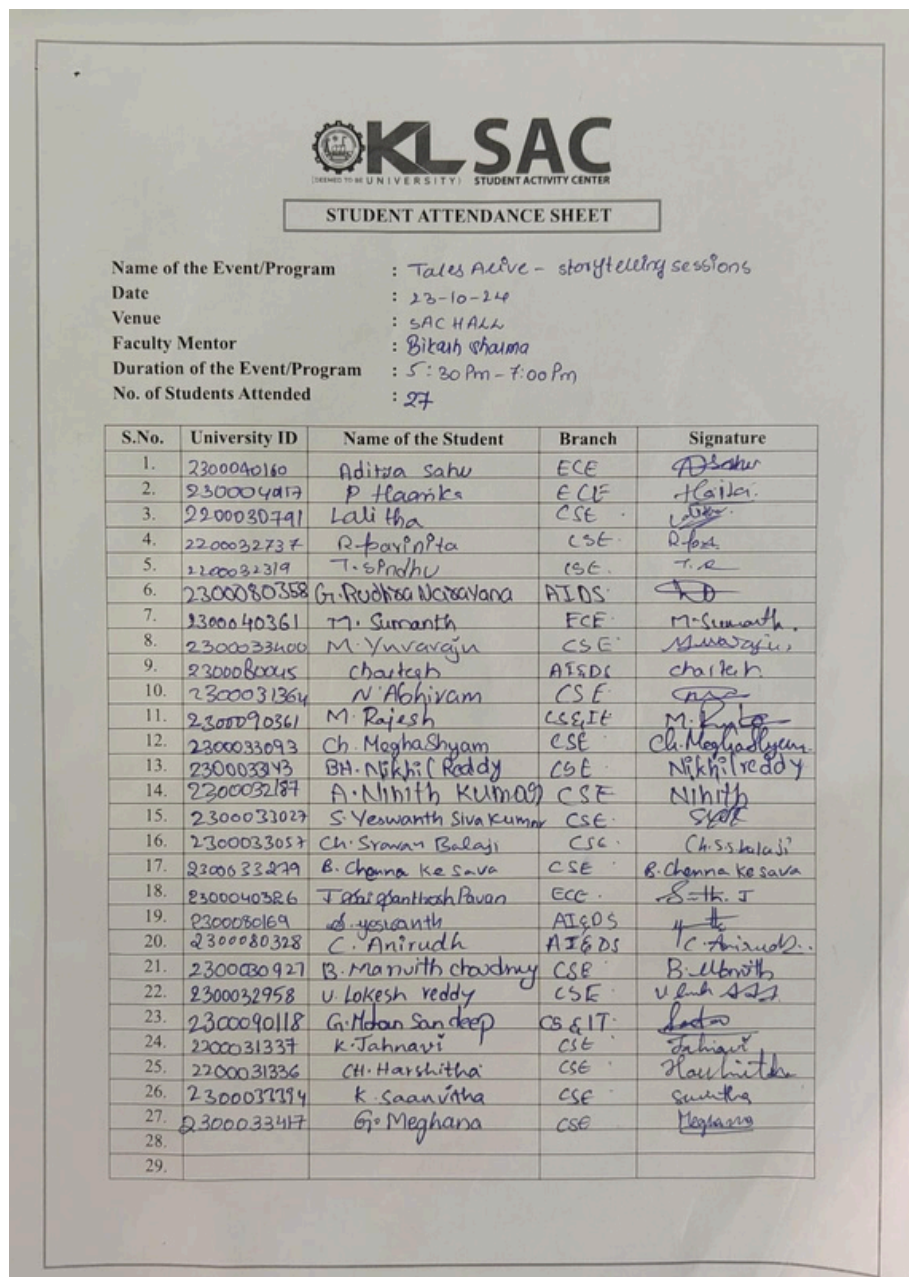 KL SAC
(DEEMED TO BE UNIVERSITY) STUDENT ACTIVITY CENTER
STUDENT ATTENDANCE SHEET
Name of the Event/Program : Tales Alive - storytelling sessions
Date : 23-10-24
Venue : SAC HALL
Faculty Mentor : Bikash sharma
Duration of the Event/Program : 5:30 Pm - 7:00 Pm
No. of Students Attended : 27
S.No. University ID Name of the Student Branch Signature
1. 2300040160 Aditya Sahu ECE ASahu
2. P Haarika ECE
3. 2200030791 Lalitha CSE
4. 2200032737 R. parinita CSE
5. 2200032319 T. Sindhu CSE T.R
6. 2300080358 G. Rudhra Narayana AIDS
7. 2300040361 M. Sumanth ECE M. Sumanth.
8. 2300033400 M. Yuvaraju CSE
9. 2300080045 Chartesh AI&DS chartesh
10. 2300031364 N. Abhiram CSE
11. 2300090361 M. Rajesh CS&IT M.
12. 2300033093 Ch. MeghaShyam CSE Ch. MeghaShyam.
13. BH. Nikhil Reddy CSE Nikhil reddy
14. 2300032187 A. Nihith Kumar CSE Nihith
15. 2300033027 S. Yeswanth Siva Kumar CSE
16. 2300033057 Ch. Sravan Balaji CSE Ch.S.S balaji
17. 2300033279 B. Chenna Kesava CSE B. Chenna Kesava
18. 2300040326 J Sai Santhosh Pavan ECE
19. 2300080169 S. yeswanth AI&DS
20. 2300080328 C. Anirudh AI&DS C. Anirudh.
21. 2300030927 B. Manvith choudary CSE B. Manvith
22. 2300032958 U. Lokesh reddy CSE
23. 2300090118 G. Mohan Sandeep CS & IT
24. 2200031337 K. Jahnavi CSE Jahnavi
25. 2200031336 CH. Harshitha CSE Harshitha
26. K. Saanvitha CSE
27. 2300033417 G. Meghana CSE Meghana
28.
29.